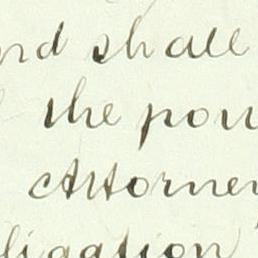 nd shall
the pow
Attorney
ligation